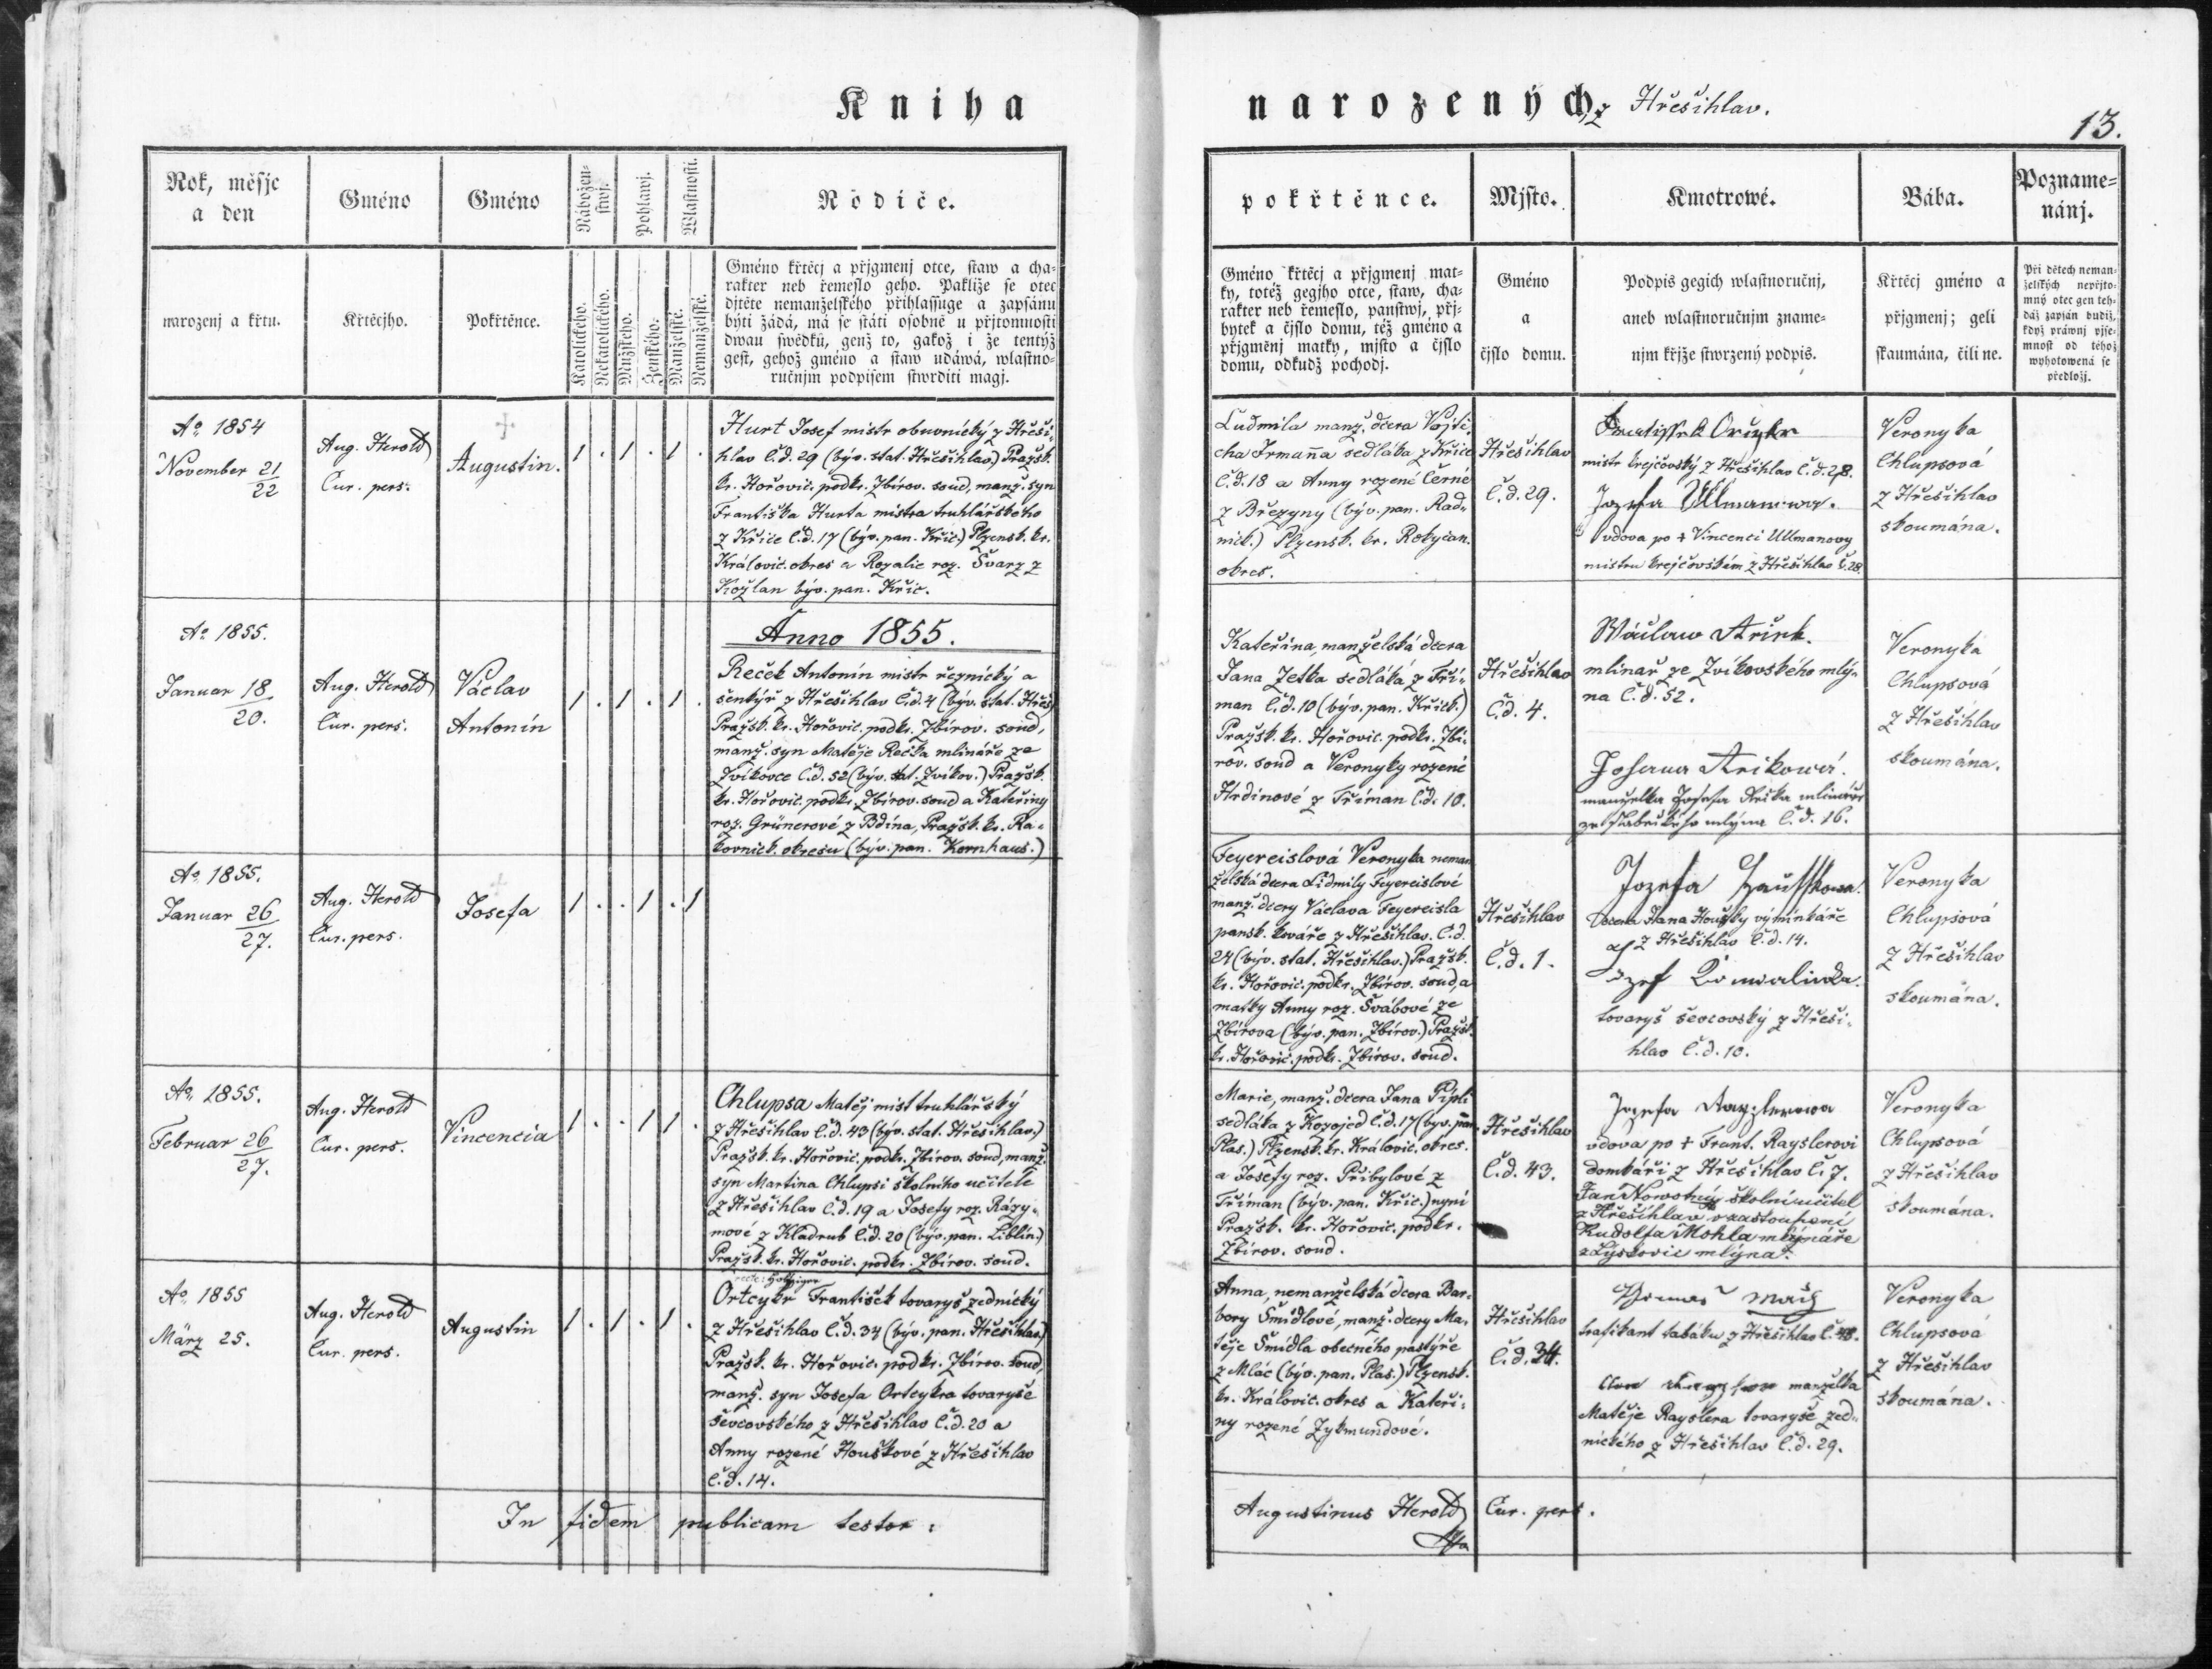 Kniha
narozených z Hřešihlav.
13.
Rok, měsjc
a den
Gméno
Gméno
Nábožen-
stwj.
Pohlawj.
Wlastnosti.
Rodiče.
narozenj a křtu.
Křtěcjho.
Pokřtěnce.
Katolického.
Nekatolického.
Mužského.
Ženského.
Manželské.
Nemanželské.
Gméno křtěcj a přjgmenj otce, staw a cha-
rakter neb řemeslo geho. Pakliže se otec
djtěte nemanželského přihlassuge a zapsánu
býti žádá, má se státi osobně u přjtomnosti
dwau swědků, genž to, gakož i že tentýž
gest, gehož gméno a staw udáwá, wlastno-
ručnjm podpisem stwrditi magj.
pokřtěnce.
Mjsto.
Kmotrowé.
Bába.
Pozname-
nánj.
Gméno křtěcj a přjgmenj mat-
ky, totéž gegjho otce, staw, cha-
rakter neb řemeslo, panstwj, při-
bytek a čjslo domu, též gméno a
přjgměnj matky, mjsto a čjslo
domu, odkudž pochodj.
Gméno
a
čjslo domu.
Podpis gegich wlastnoručnj,
aneb wlastnoručnjm zname-
njm křjže stwrzený podpis.
Křtěcj gméno a
přjgmenj; geli
skaumána, čili ne.
Při dětech neman-
želských nepřjto-
mný otec gen teh-
dáž zapsán budiž,
když práwnj pjse-
mnost od téhož
wyhotowená se
předložj.
Ao 1854
November 21/22
Aug. Herold
Cur. pers.
Augustin.
1 . 1 . 1 .
Hurt Josef mistr obuvnický z Hřeši-
hlav č.d. 29 (býv. stat. Hřešihlav.) Pražsk.
kr. Hořovic. podkr. Zbirov. soud, manž. syn
Františka Hurta mistra truhlářského
z Křiče č.d. 17 (býv. pan. Křic.) Plzensk. kr.
Královic. okres a Rozalie roz. Švarz z
Kožlan býv. pan. Křic.
Ludmila manž. dcera Vojtě-
cha Irmaňa sedláka z Křiče
č.d. 18 a Anny rozené Černé
z Březyny (býv. pan. Rad-
nick.) Plzensk. kr. Rokycan.
okres.
Hřešihlav
č.d. 29.
mistr krejčovský z Hřešihlav č.d. 28.
Jozefa Ullmanowa.
vdova po + Vincenci Ullmanovy
mistru krejčovském z Hřešihlav č. 28.
Veronyka
Chlupsová
z Hřešihlav
skoumána.
Ao 1855.
Anno 1855.
Januar 18/20.
Aug. Herold
Cur. pers.
Václav
Antonín
1 . 1 . 1 .
Reček Antonín mistr řeznický a
šenkýř z Hřešihlav č.d. 4 (býv. stat. Hřeš.)
Pražsk. kr. Hořovic. podkr. Zbirov. soud,
manž. syn Matěje Rečka mlináře ze
Zvíkovce č.d. 52 (býv. stat. Zvíkov.) Pražsk.
kr. Hořovic. podkr. Zbirov. soud a Kateřiny
roz. Grünerové z Bdína, Pražsk. kr. Ra-
kovnick. okresu (býv. pan. Kornhaus.)
Kateřina, manželská dcera
Jana Zetka sedláka z Tří-
man č.d. 10 (býv. pan. Křick.)
Pražsk. kr. Hořovic. podkr. Zbi-
rov. soud a Veronyky rozené
Hrdinové z Tříman č.d. 10.
Hřešihlav
č.d. 4.
Wáclaw
mlinař ze Zvíkovského mlý-
na č.d. 52.
Johana
manželka Josefa mlináře
ze mlýna č.d. 16.
Veronyka
Chlupsová
z Hřešihlav
skoumána.
Ao 1855.
Januar 26/27.
Aug. Herold
Cur. pers.
Josefa
1 . . 1 . 1
Feyereislová Veronyka neman-
želská dcera Lidmily Feyereislové
manž. dcery Václava Feyereisla
pansk. kováře z Hřešihlav. č.d.
24 (býv. stat. Hřešihlav.) Pražsk.
kr. Hořovic. podkr. Zbirov. soud, a
matky Anny roz. Švábové ze
Zbirova (býv. pan. Zbirov.) Pražsk.
kr. Hořovic. podkr. Zbirov. soud.
Hřešihlav
č.d. 1.
Jozefa
dcera Jana Houšky výminkáře
z Hřešihlav č.d. 14.
Jozef
tovaryš ševcovský z Hřeši-
hlav č.d. 10.
Veronyka
Chlupsová
z Hřešihlav
skoumána.
Ao 1855.
Februar 26/27.
Aug. Herold
Cur. pers.
Vincencia
1 . . 1 1 .
Chlupsa Matěj mist truhlářský
z Hřešihlav č.d. 43 (býv. stat. Hřešihlav.)
Pražsk. kr. Hořovic. podkr. Zbirov. soud, manž.
syn Martina Chlupsi školního učitele
z Hřešihlav č.d. 19 a Josefy roz. Rázy-
mové z Kladrub č.d. 20 (býv. pan. Liblin.)
Pražsk. kr. Hořovic. podkr. Zbirov. soud.
Marie, manž. dcera Jana Pipli
sedláka z Kozojed č.d. 17 (býv. pan.
Plas.) Plzensk. kr. Královic. okres.
a Josefy roz. Přibylové z
Tříman (býv. pan. Křic.) nyní
Pražsk. kr. Hořovic. podkr.
Zbirov. soud.
Hřešihlav
č.d. 43.
Jozefa
vdova po + Frant. Rayslerovi
domkáři z Hřešihlav č. 7.
Jan Nowotný školní učitel
z Hřešihlav v zastoupení
Rudolfa Mohla mlynáře
z mlýna.
Veronyka
Chlupsová
z Hřešihlav
skoumána.
Ao 1855
März 25.
Aug. Herold
Cur. pers.
Augustin
1 . 1 . 1 .
Ortcykr František tovaryš zednický
z Hřešihlav č.d. 34 (býv. pan. Hřešihlav.)
Pražsk. kr. Hořovic. podkr. Zbirov. soud,
manž. syn Josefa Ortcykra tovaryše
ševcovského z Hřešihlav č.d. 20 a
Anny rozené Houškové z Hřešihlav
č.d. 14.
Anna, nemanželská dcera Bar-
bory Šmidlové, manž. dcery Ma-
těje Šmidla obecného pastýře
z Mlác (býv. pan. Plas.) Plzensk.
kr. Královic. okres a Kateři-
ny rozené Zykmundové.
Hřešihlav
č.d. 34.
trafikant tabáku z Hřešihlav č. 48.
manželka
Matěje Rayslera tovaryše zed-
nického z Hřešihlav č.d. 29.
Veronyka
Chlupsová
z Hřešihlav
skoumána.
In fidem publicam testor:
Augustinus Herold Cur. pers.